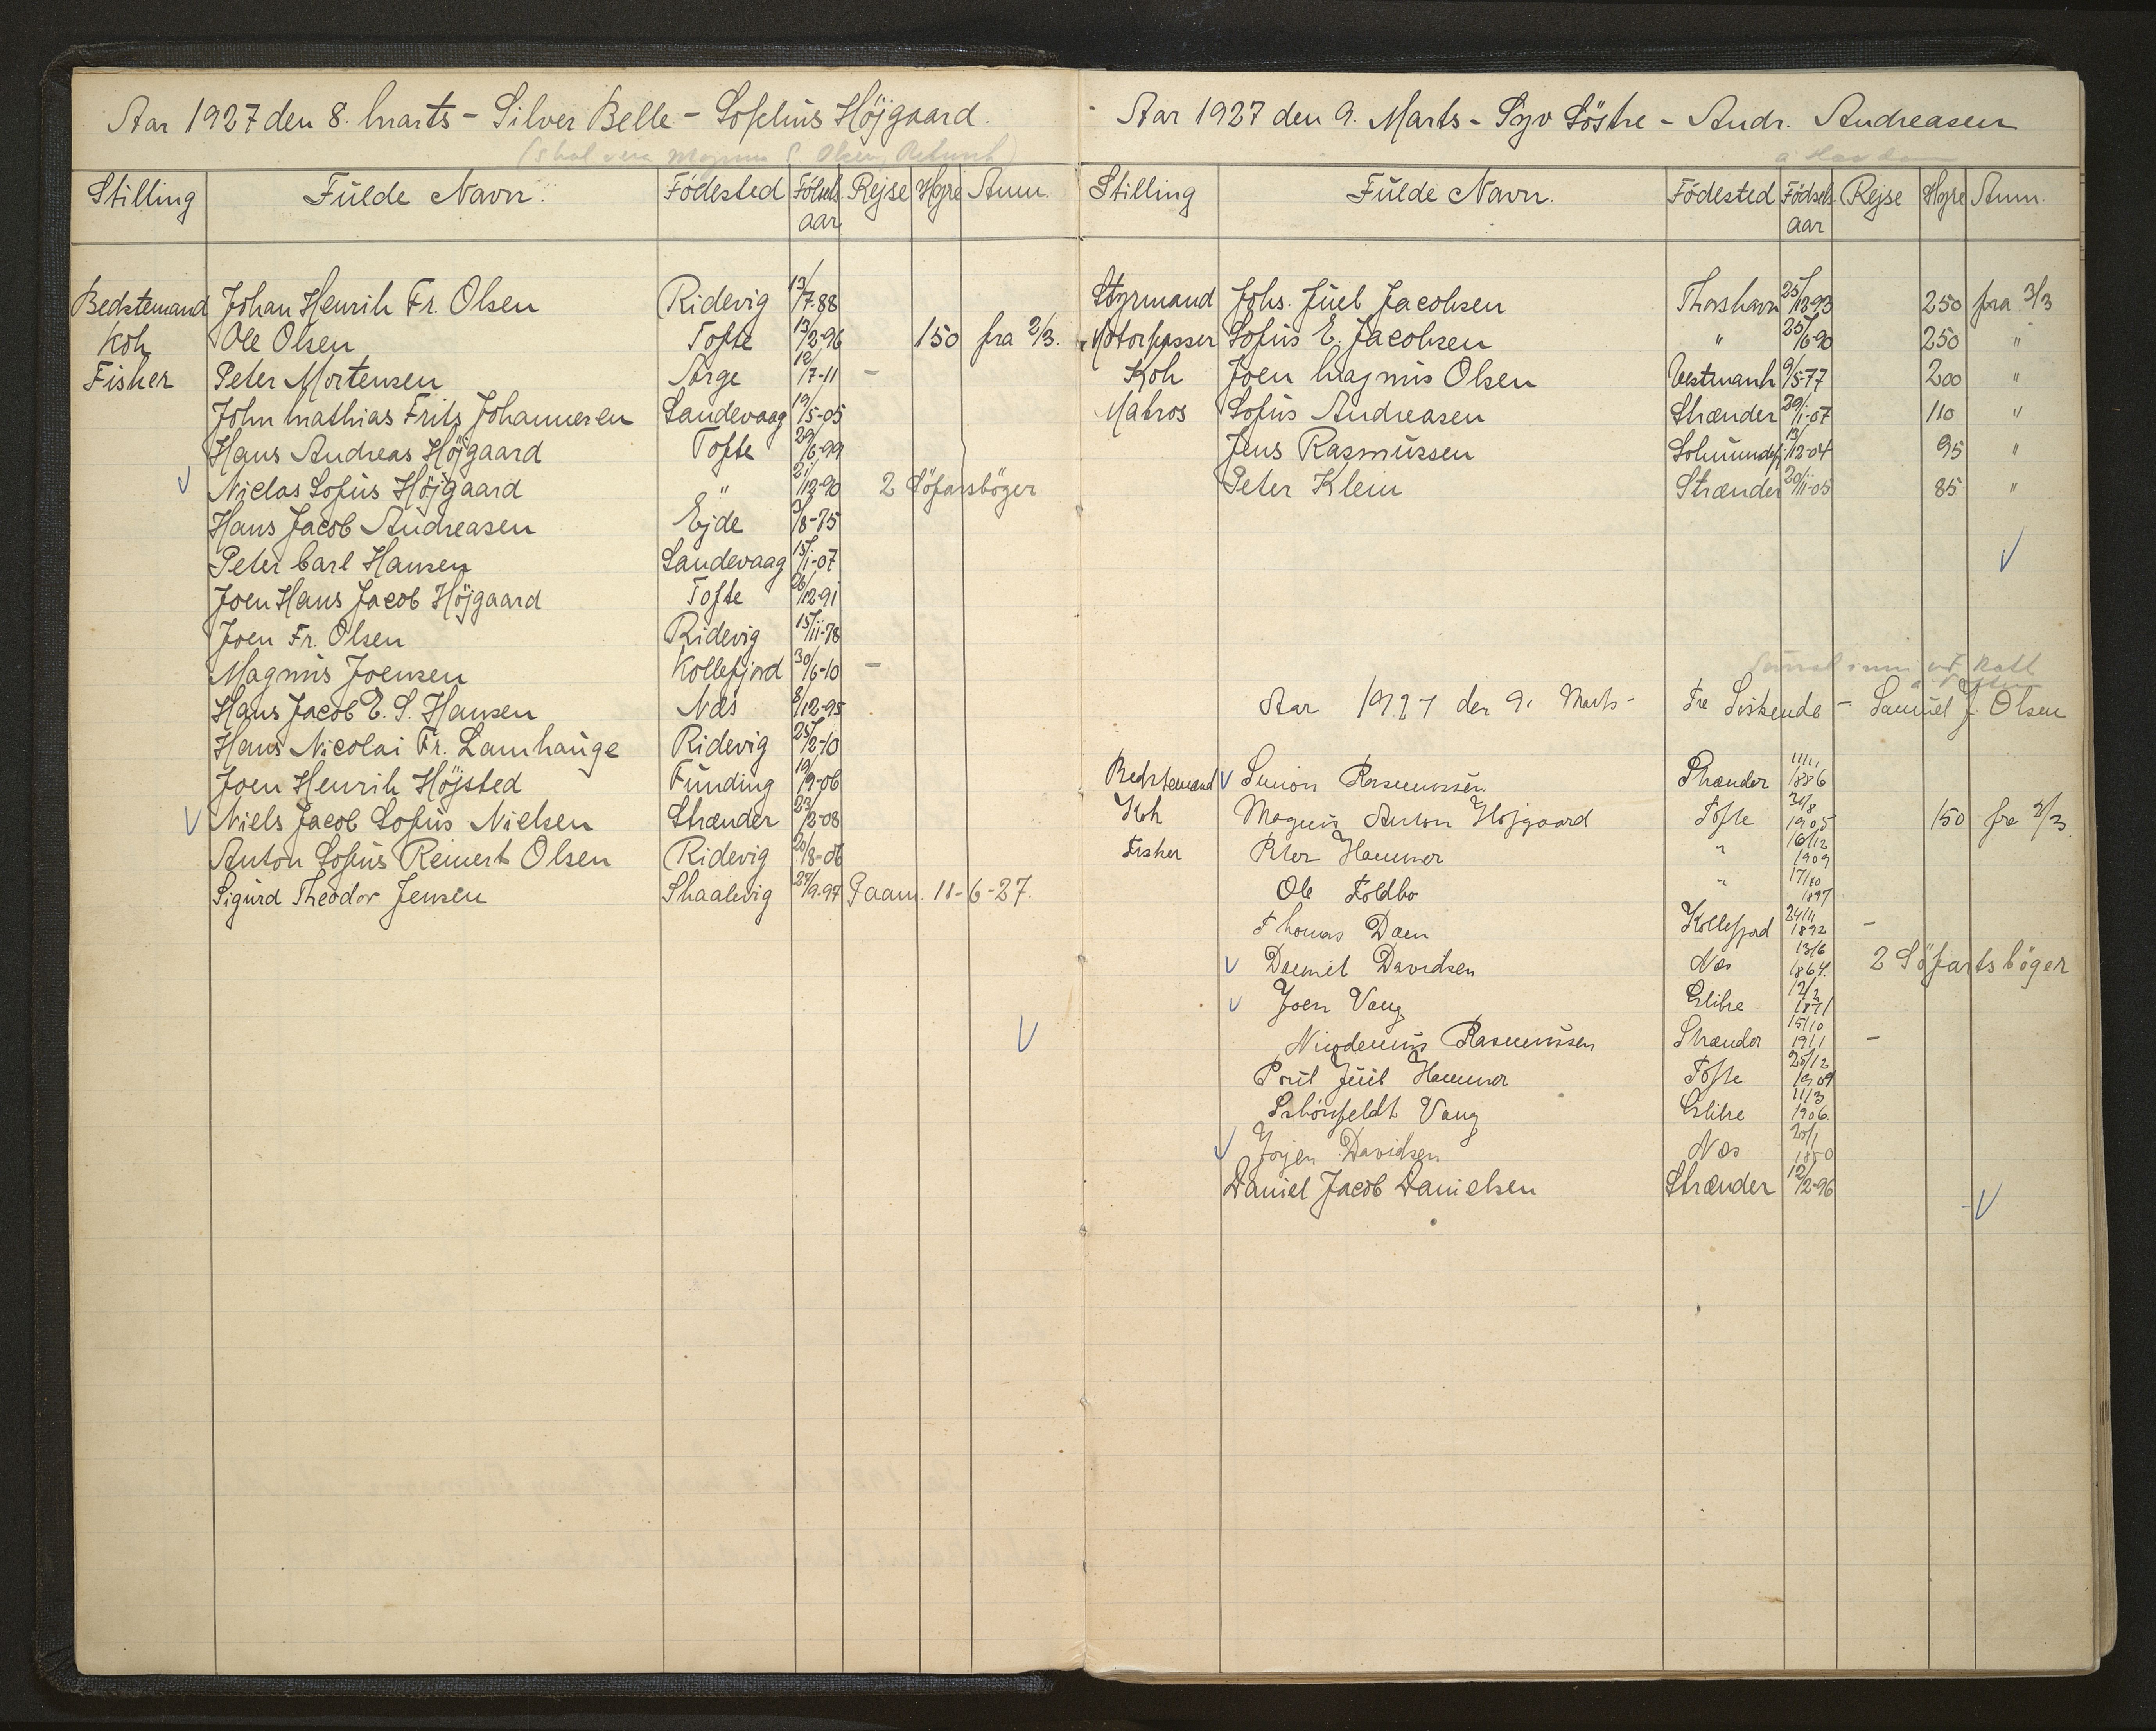 Aar 1927 den 8. Marts - Silver Belle - Sophus Höjgaard.
(skal vera Magnus Olsen,
Stilling Fulde Navn. Födested Födsels aar Rejse Hyre Anm.
Bedstemand Johan Henrik Fr. Olsen Ridevig 13/7-88
Kok Ole Olsen Tofte 13/2-96 150 fra 2/3.
Fisker Peter Mortensen Arge 12/7-11 -
John Mathias Frits Johannesen Sandevaag 19/5-05
Hans Andreas Höjgaard Tofte 29/6-99
V Niclas Sofus Höjgaard " 21/12-90 2 Söfartsböger
Hans Jacob Andreasen Ejde 3/8-75
Peter Carl Hansen Sandevaag 15/1-07
Joen Hans Jacob Höjgaard Tofte 26/12-91
Joen Fr. Olsen Ridevig 15/11-78
Magnus Joensen Kollefjord 30/6-10 -
Hans Jacob E. S. Hansen Næs 8/12-95
Hans Nicolai Fr. Lamhauge Ridevig 25/2-10
Joen Henrik Höjsted Funding 19/9-06
V Niels Jacob Sofus Nielsen Strænder 23/2-08
Anton Sofus Reinert Olsen Ridevig 20/8-06
Sigurd Theodor Jensen Skaalevig 27/9-97 Paam. 11-6-27.
V
Aar 1927 den 9. Marts - Syv Söstre - Andr. Andreasen
Stilling Fulde Navn. Födested Födsels aar Rejse Hyre Anm.
Styrmand Johs. Juel Jacobsen Thorshavn 25/12-93 250 fra 3/3
Motorpasser Sofus E. Jacobsen " 25/6-90 250 "
Kok Joen Magnus Olsen Vestmanh 9/5-77 200 "
Matros Sofus Andreasen Strænder 29/1-07 110 "
Jens Rasmussen 13/12-04 95 "
Peter Klein Strænder 20/11-05 85 "
V
Aar 1927 den 9. Marts - Tre Söskende - Samuel J. Olsen
Bedstemand V Simon Rasmussen. Strænder 11/11 1886
Kok Magnus Anton Hojgaard Tofte 31/8 1905 150 fra 2/3.
Fisker Peter Hammer " 16/12 1909
Ole Toldbo " 17/10 1897
Thomas Dam Kollefjord 24/11 1892 -
V Daniel Davidsen Næs 13/6 1864. 2 Söfartsböger
V Joen Vang Glibre 12/2 1871
Nicodemus Rasmussen Strænder 15/10 1911 -
Poul Juul Hammer Tofte 20/12 1909
Schönfeldt Vang Glibre 11/3 1906.
V Jorgen Davidsen Næs 20/1 1850
Daniel Jacob Danielsen Strænder 12/2-96
V